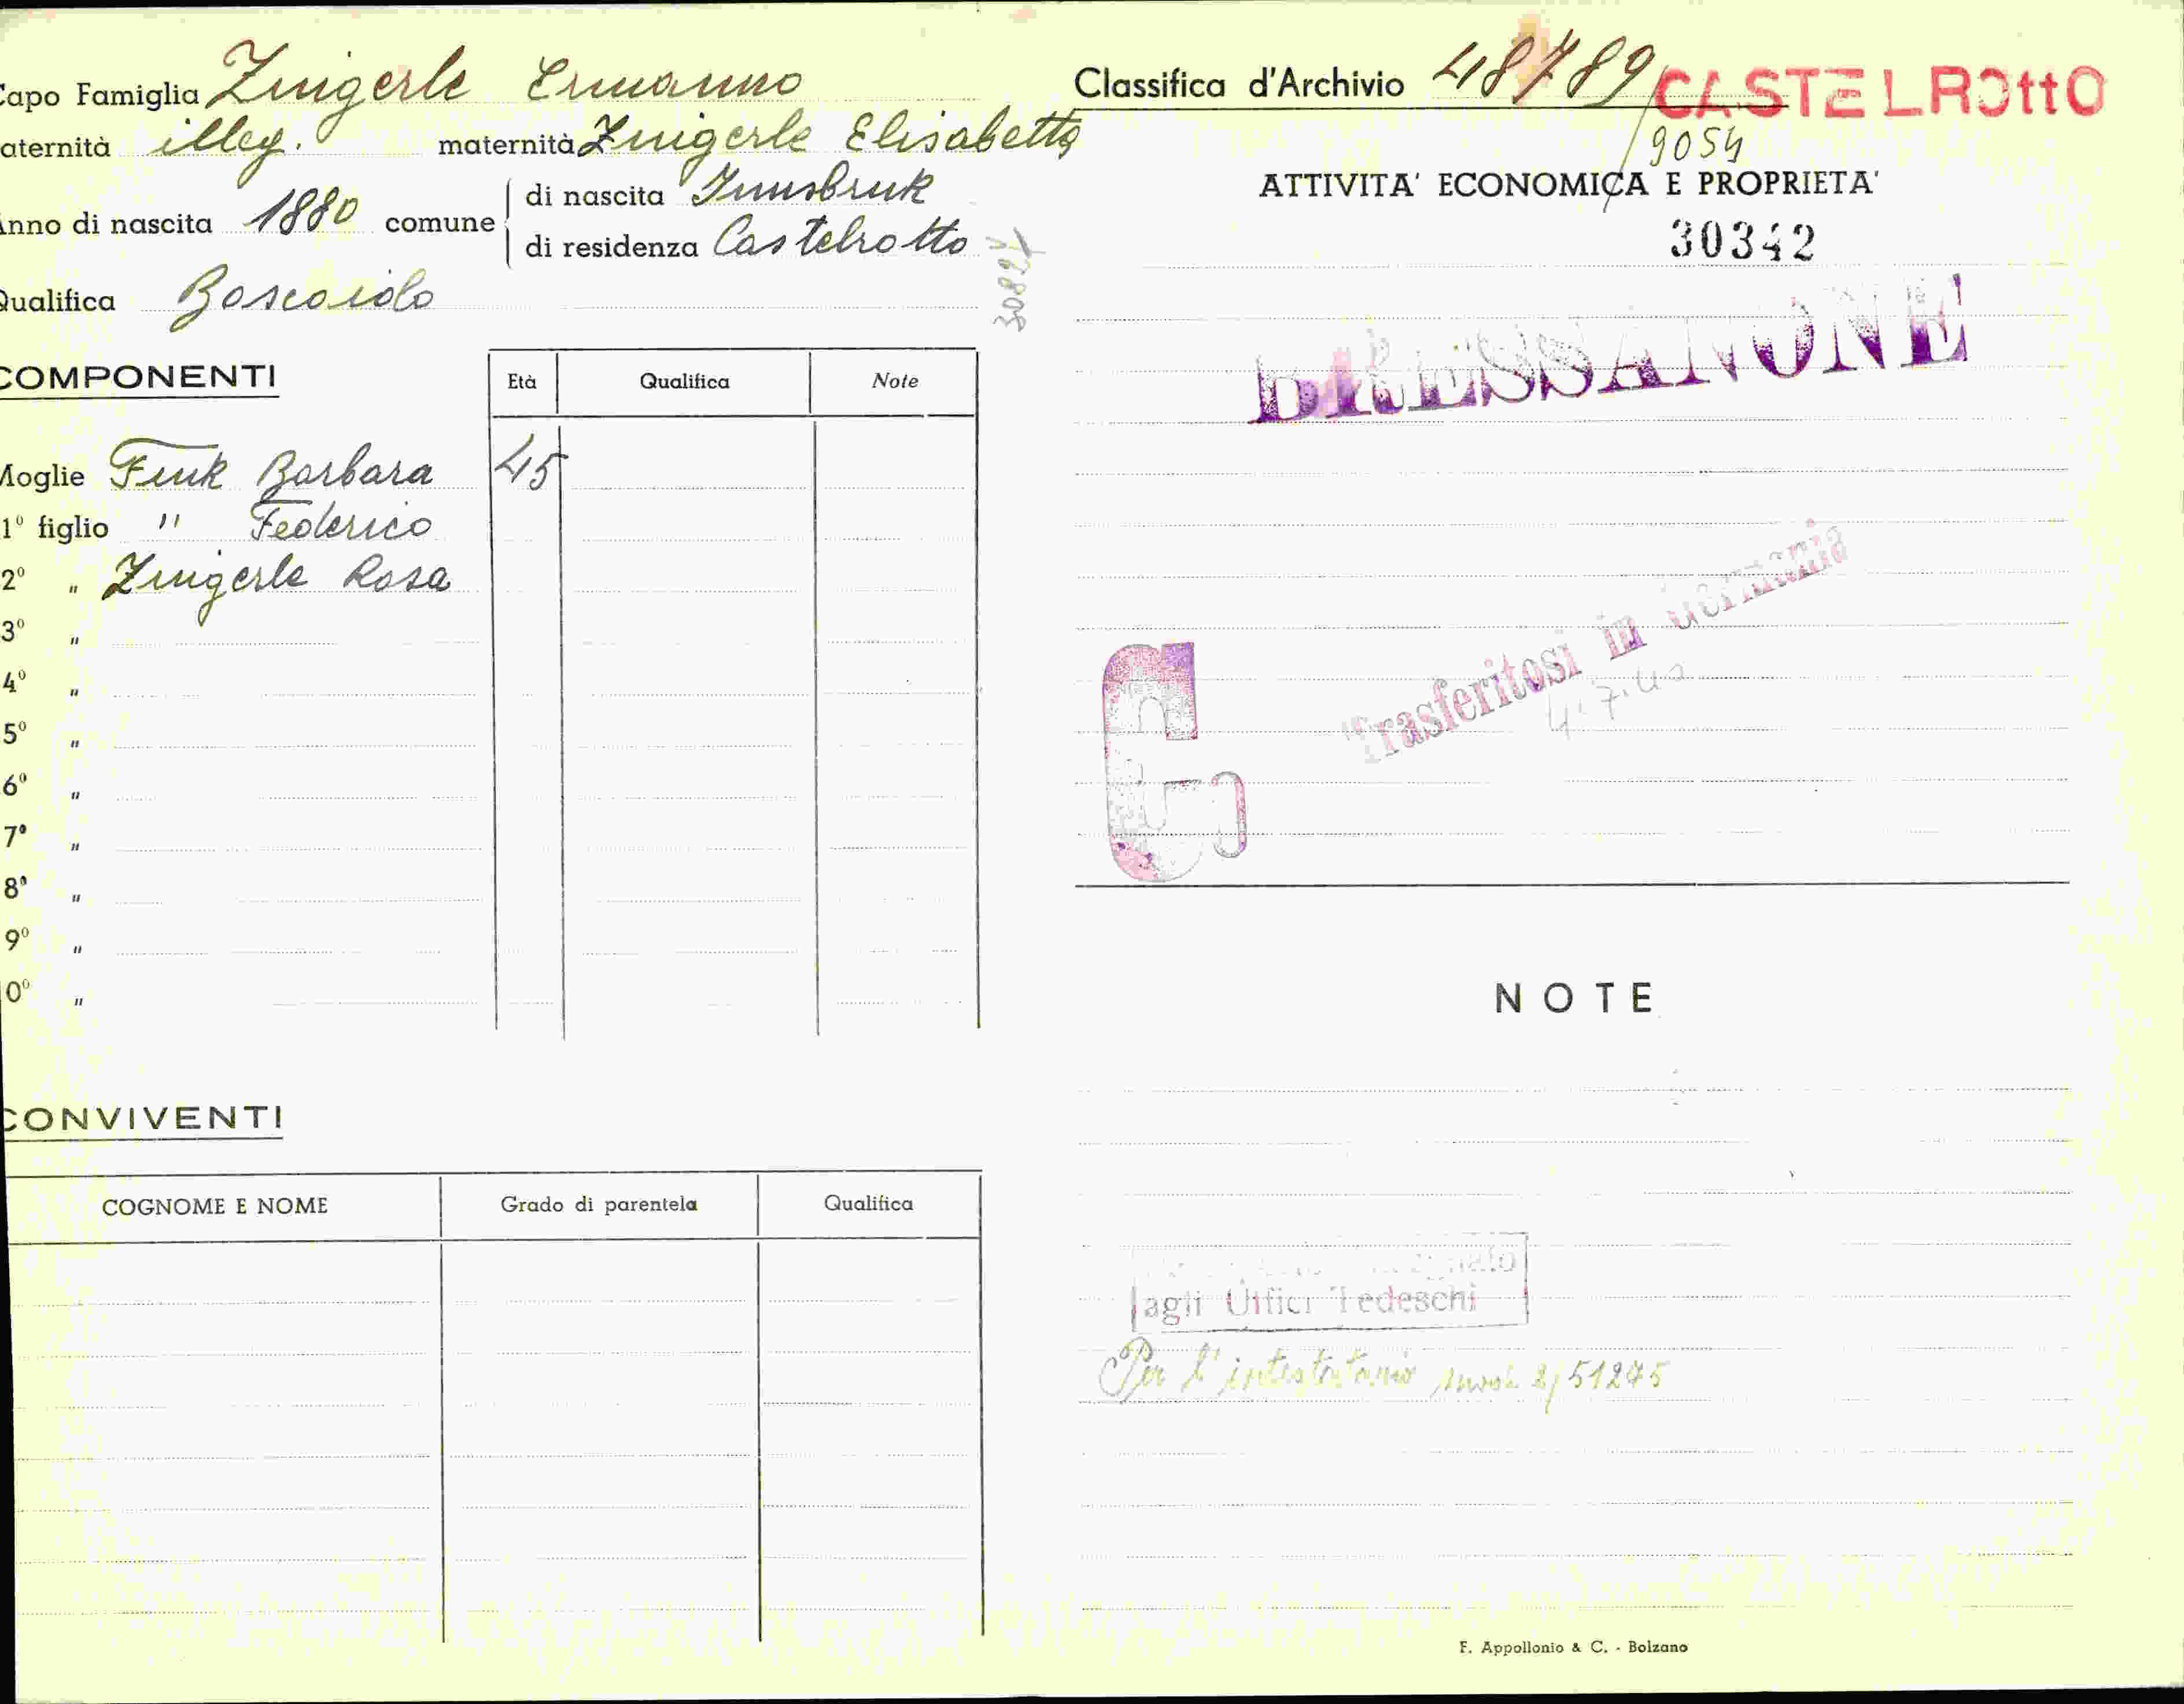 Capo Famiglia Zingerle Ermanno
aternità illeg. maternità Zingerle Elisabetta
Anno di nascita 1880 comune di nascita Innsbruk
di residenza Castelrotto
Qualifica Boscaiolo
30827
COMPONENTI
Età Qualifica Note
Moglie Fink Barbara 45
1º figlio " Federico
2º " Zingerle Rosa
3º "
4º "
5º "
6º "
7º "
8º "
9º "
0º "
CONVIVENTI
COGNOME E NOME Grado di parentela Qualifica
Classifica d'Archivio 48789/ CASTELROttO
9054
ATTIVITA' ECONOMICA E PROPRIETA'
30342
BRESSANONE
Trasferitosi in Germania
4.7.40
G
NOTE
agli Uffici Tedeschi
Per l'intestatario 2/51275
F. Appollonio & C. - Bolzano